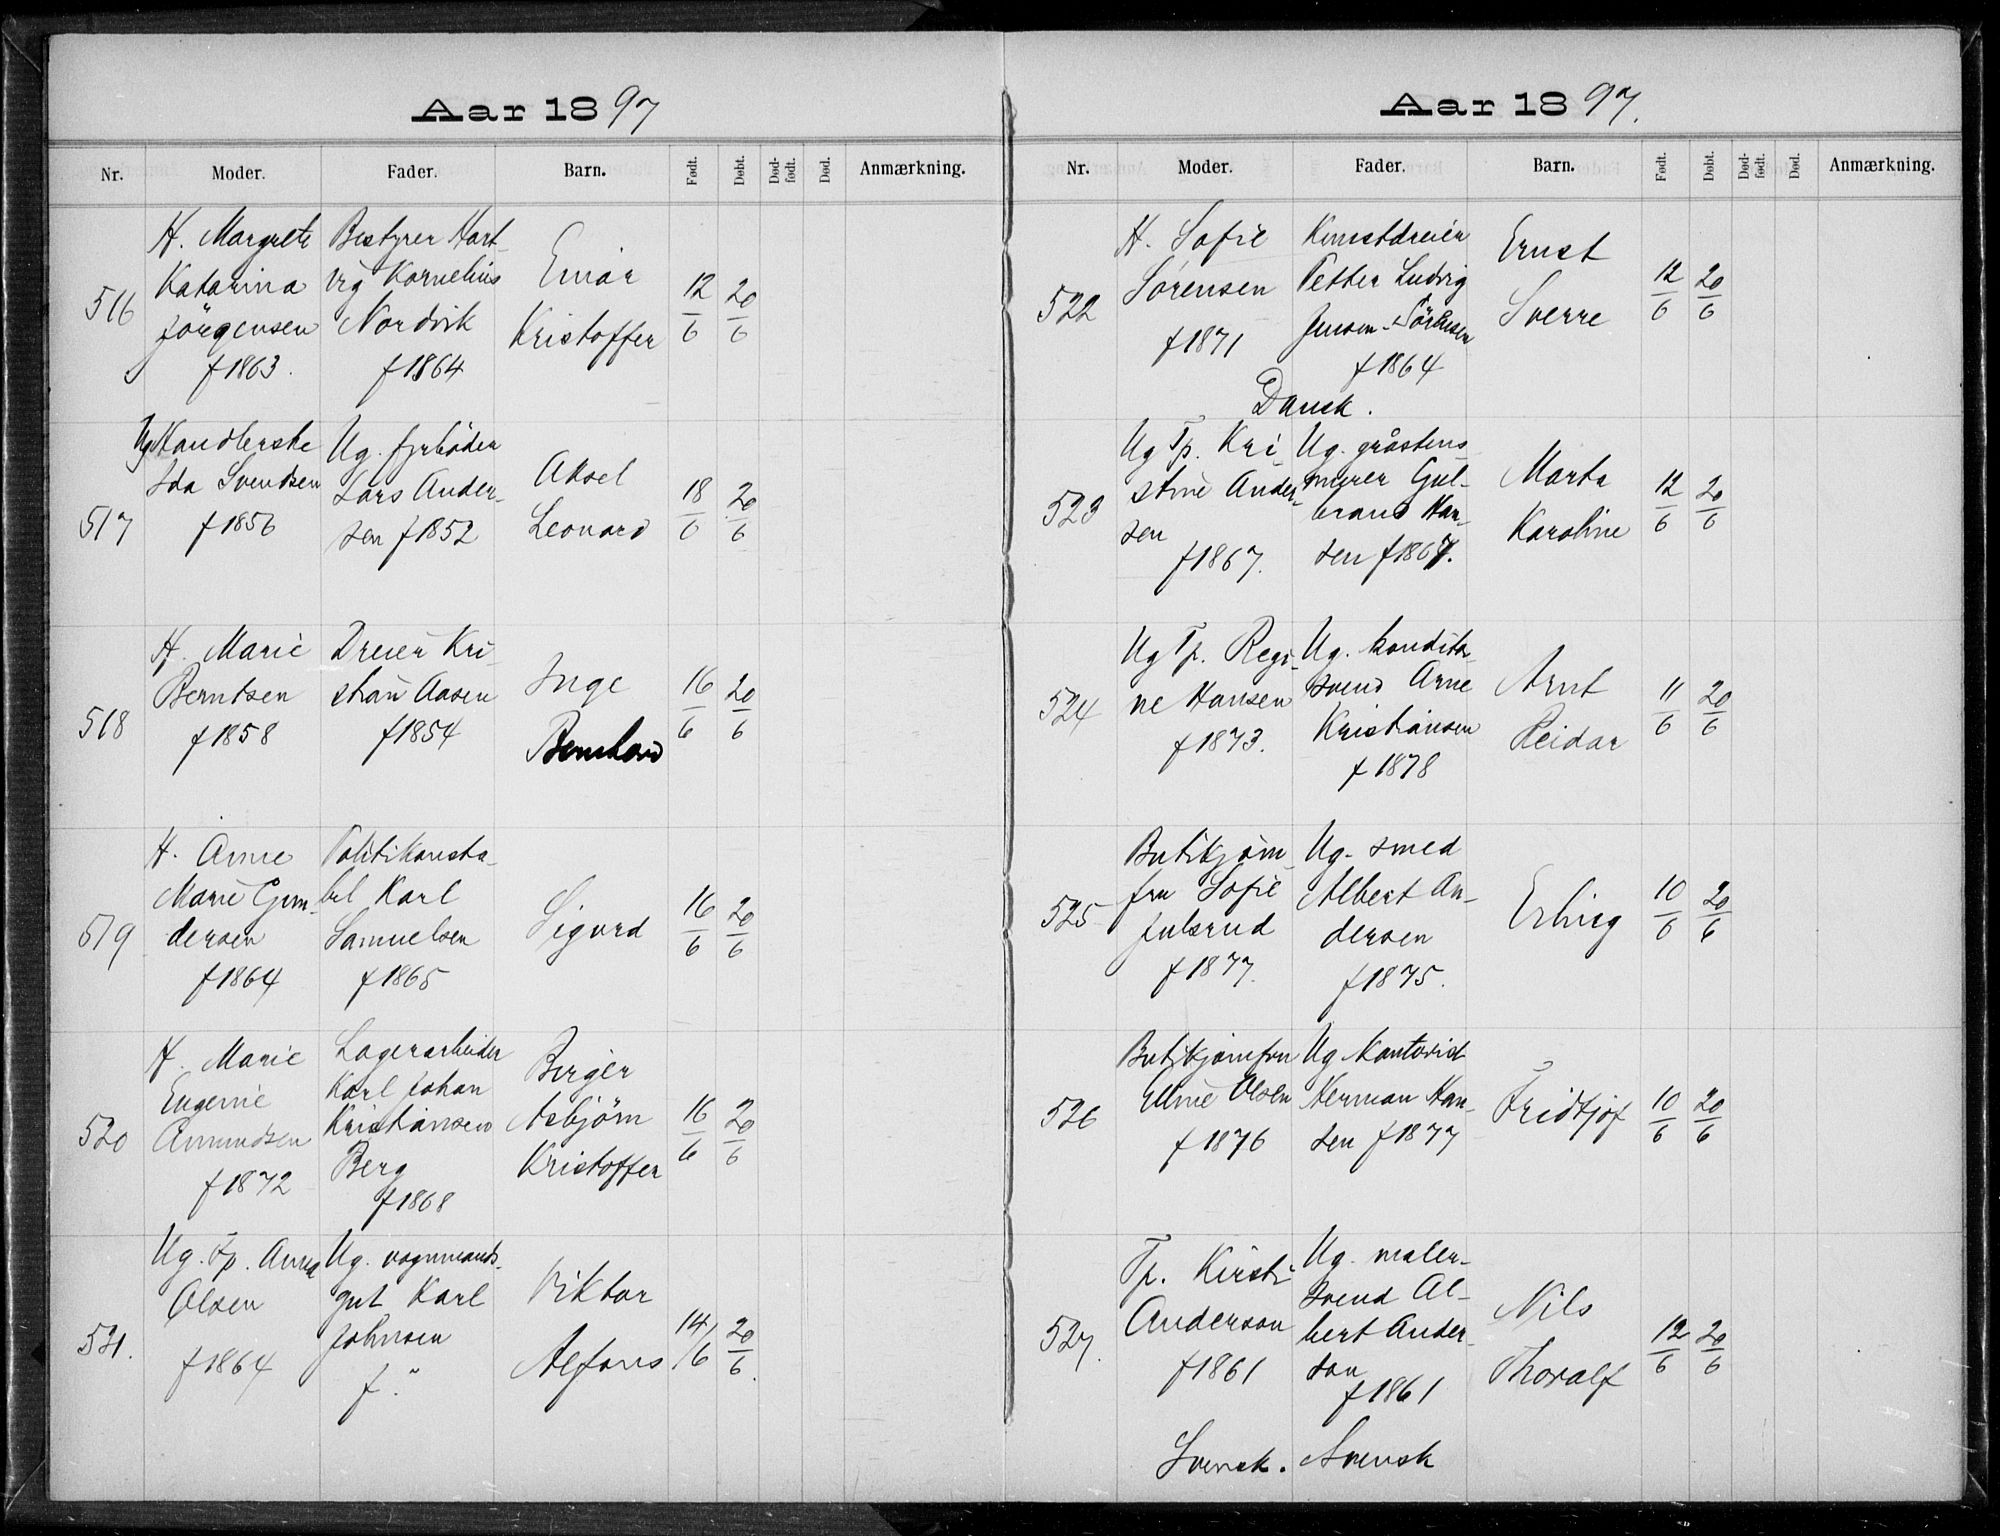 Aar 1897
Nr. Moder. Fader. Barn. Født. Døbt. Død-født. Død. Anmærkning.
516
H. Margrete
Katarina
Jörgensen
f 1863.
Bestyrer Hart-
vig Kornelius
Nordvik
f 1864
Einar
Kristoffer
12/6
20/6
517
Ug Handlerske
Ida Svendsen
f 1856
Ug. fyrböder
Lars Ander-
sen f 1852
Aksel
Leonard
18/6
20/6
518
H. Marie
Berntsen
f 1858
Dreier Kri-
stian Aasen
f 1854
Inge
Bernhard
16/6
20/6
519
H. Anne
Marie Gun-
dersen
f 1864
Politikonsta-
bel Karl
Samuelsen
f 1865
Sigurd
16/6
20/6
520
H. Marie
Eugenie
Amundsen
f 1872
Lagerarbeider
Karl Johan
Kristiansen
Berg
f 1868
Birger
Asbjörn
Kristoffer
16/6
20/6
521.
Ug. Tp. Anna
Olsen
f 1864
Ug. vognmands-
gut Karl
Johnsen
f. "
Viktor
Alfons
14/6
20/6.
Aar 1897.
Nr. Moder. Fader. Barn. Født. Døbt. Død-født. Død. Anmærkning.
522
H. Sofie
Sörensen
f 1871
Kunstdreier
Petter Ludvig
Jensen-Sörensen
f 1864
Dansk.
Ernst
Sverre
12/6
20/6
523
Ug Tp. Kri-
stine Ander-
sen
f 1867.
Ug. gråstens-
murer Gul-
brand Han-
sen f 1867.
Marta
Karoline
12/6
20/6
524
Ug Tp. Regi-
ne Hansen
f 1873.
Ug. konditor-
svend Arne
Kristiansen
f 1878
Arnt
Reidar
11/6
20/6
525
Butikjom-
fru Sofie
Julsrud
f 1877.
Ug. smed
Albert An-
dersen
f 1875.
Erling
10/6
20/6
526
Butikjomfru
Elline Olsen
f 1876
Ug Kontorist
Herman Han-
sen f 1877
Fridtjof
10/6
20/6
527.
Tp. Kirsti
Anderson
f 1861
Svensk.
Ug. maler-
svend Al-
bert Ander-
son
f 1861
Svensk
Nils
Thoralf
12/6
20/6